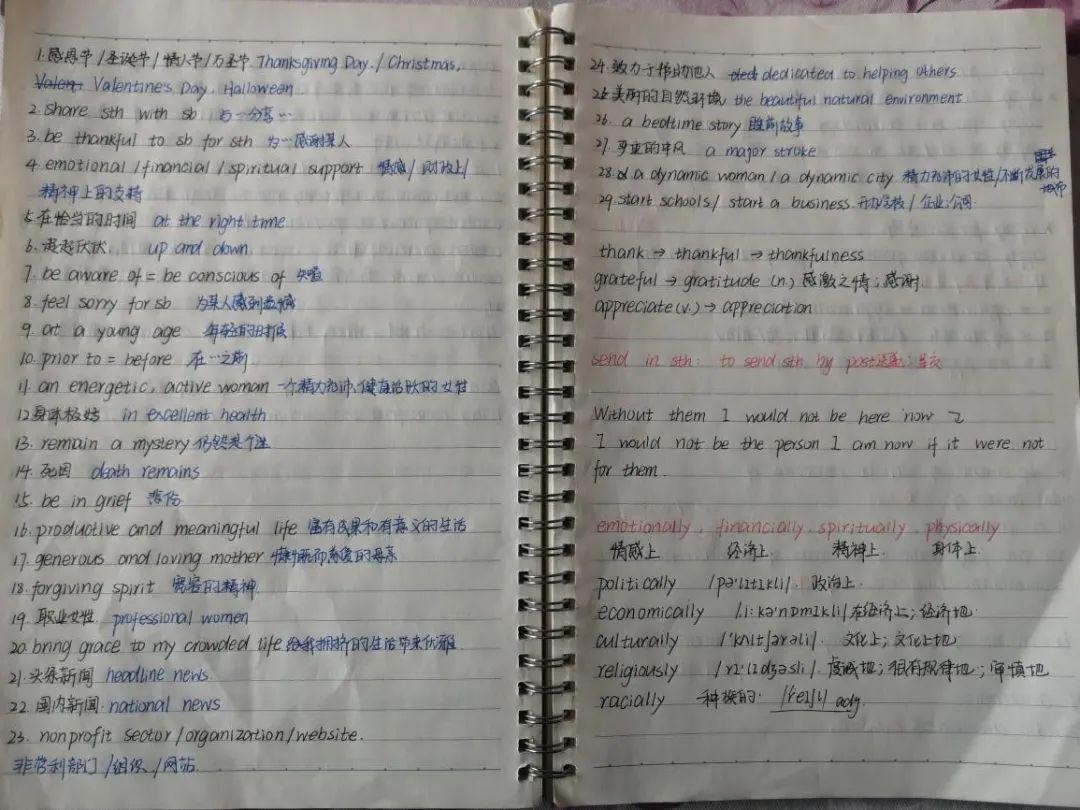 1.感恩节/圣诞节/情人节/万圣节 Thanksgiving Day./Christmas,
Valentine's Day, Halloween
2. share sth with sb 与…分享…
3. be thankful to sb for sth 为…感谢某人
4. emotional/financial/spiritual support 情感/财政上/
精神上的支持
5.在恰当的时间 at the right time
6. 起起伏伏 up and down
7. be aware of = be conscious of 知道
8. feel sorry for sb 为某人感到遗憾
9. at a young age 年轻的时候
10. prior to = before 在…之前
11. an energetic, active woman 一个精力充沛、健康活跃的女性
12.身体极好 in excellent health
13. remain a mystery 仍然是个谜
14. 死因 death remains
15. be in grief 悲伤
16. productive and meaningful life 富有成果和有意义的生活
17. generous and loving mother 慷慨而慈爱的母亲
18. forgiving spirit 宽容的精神
19. 职业女性 professional women
20. bring grace to my crowded life 给我拥挤的生活带来优雅
21. 头条新闻 headline news
22. 国内新闻 national news
23. nonprofit sector/organization/website.
非营利部门/组织/网站
24. 致力于帮助他人 dedicated to helping others
25.美丽的自然环境 the beautiful natural environment
26. a bedtime story 睡前故事
27. 严重的中风 a major stroke
28. a dynamic woman/a dynamic city 精力充沛的女性/不断发展的
城市
29. start schools/ start a business 开办学校/企业公司
thank → thankful → thankfulness
grateful → gratitude (n.) 感激之情；感谢
appreciate (v.) → appreciation
send in sth: to send sth by post
Without them I would not be here now
I would not be the person I am now if it were not
for them.
emotionally, financially, spiritually, physically
情感上 经济上 精神上 身体上
politically /pə'lɪtɪkli/. 政治上
economically /ˌiːkə'nɒmɪkli/ 在经济上；经济地
culturally /'kʌltʃərəli/. 文化上；文化上地
religiously /rɪ'lɪdʒəsli/. 虔诚地；很有规律地；审慎地
racially 种族的. adj.